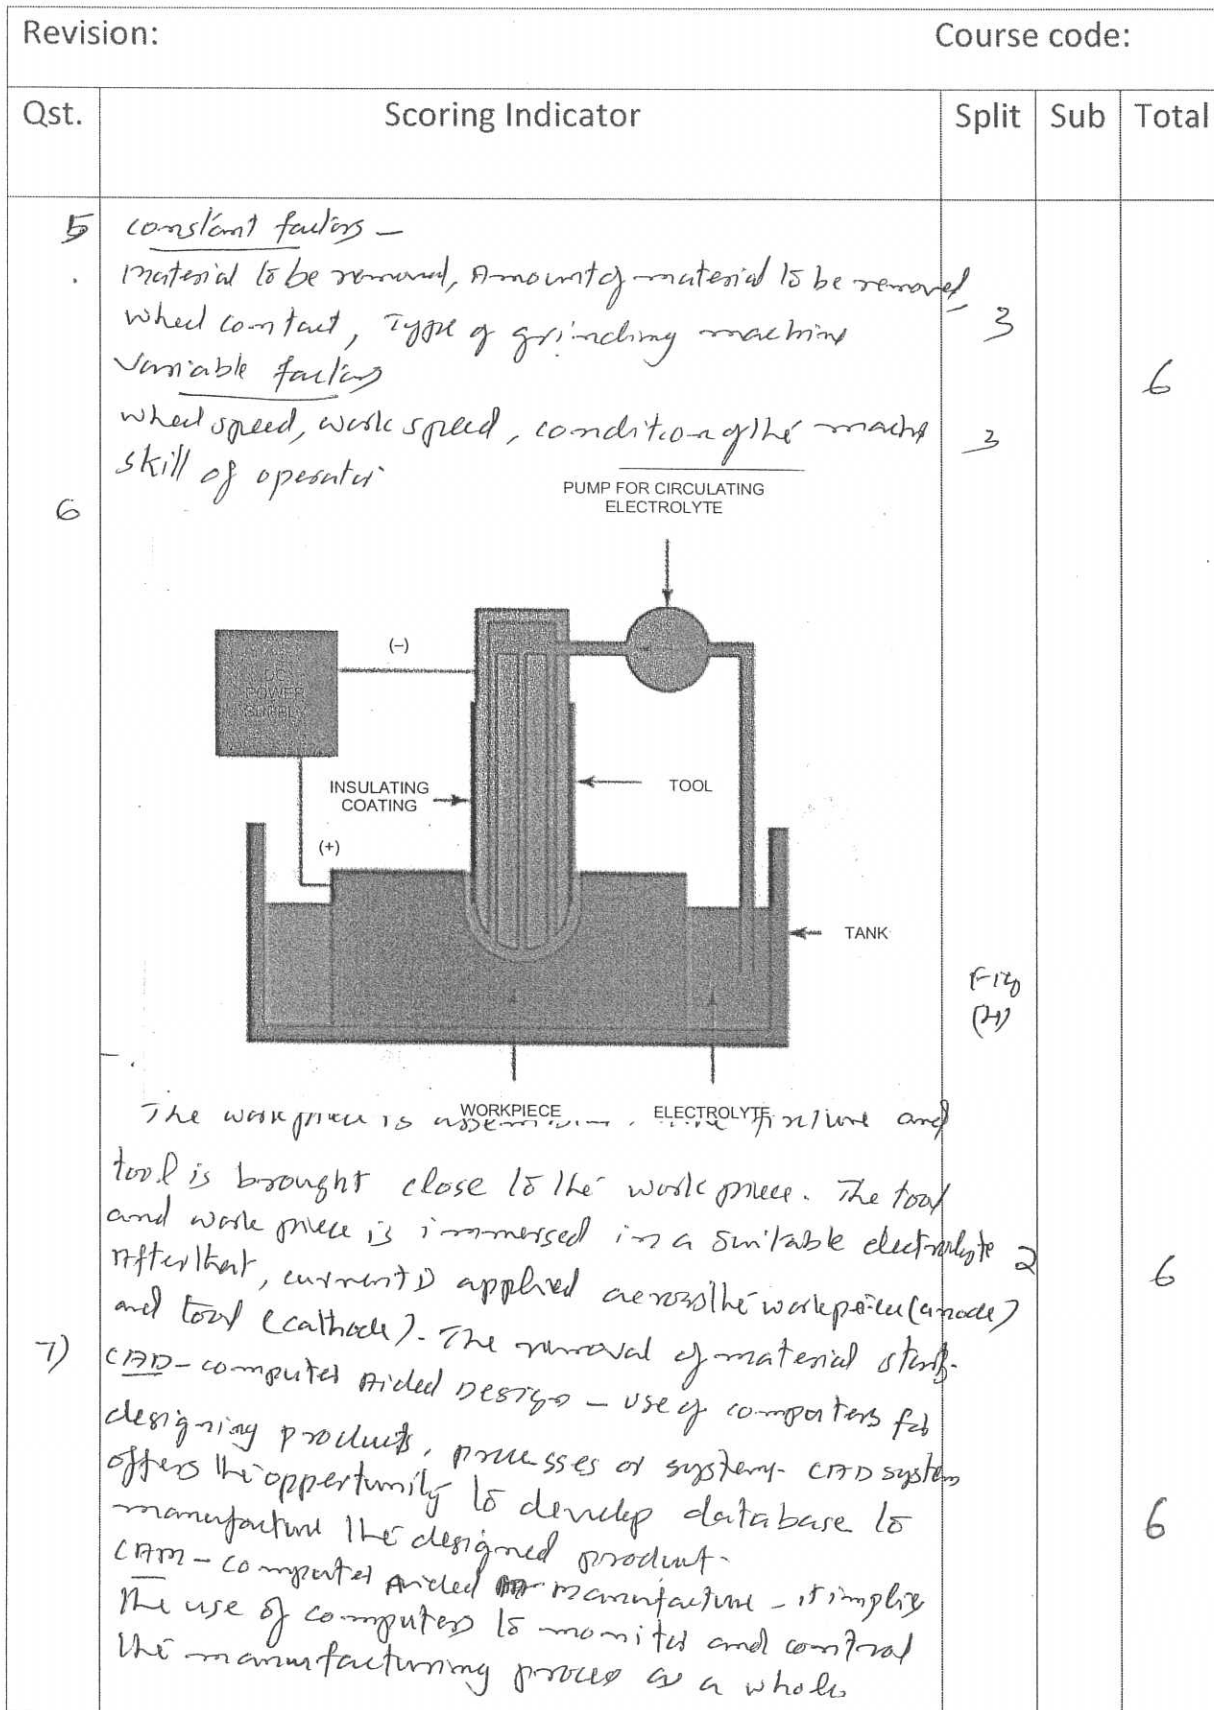 Revision: Course code:
Qst. Scoring Indicator Split Sub Total
5 constant factors –
. Material to be removed, Amount of material to be removed,
wheel contact, Type of grinding machine 3
Variable factors 6
wheel speed, work speed, condition of the machine 3
skill of operator
6
PUMP FOR CIRCULATING
ELECTROLYTE
(–)
DC
POWER
SUPPLY
INSULATING
COATING
TOOL
(+)
TANK
Fig
WORKPIECE ELECTROLYTE
The workpiece is fixture and
tool is brought close to the work piece. The tool
and work piece is immersed in a suitable electrolyte 2
After that, current is applied across the workpiece (anode) 6
and tool (cathode). The removal of material starts.
7) CAD – computer Aided Design – use of computers for
designing products, processes or system. CAD system
offers the oppertunity to develop database to
manufacture the designed product. 6
CAM – computer Aided manufacture – it implies
the use of computers to monitor and control
the manufacturing process as a whole